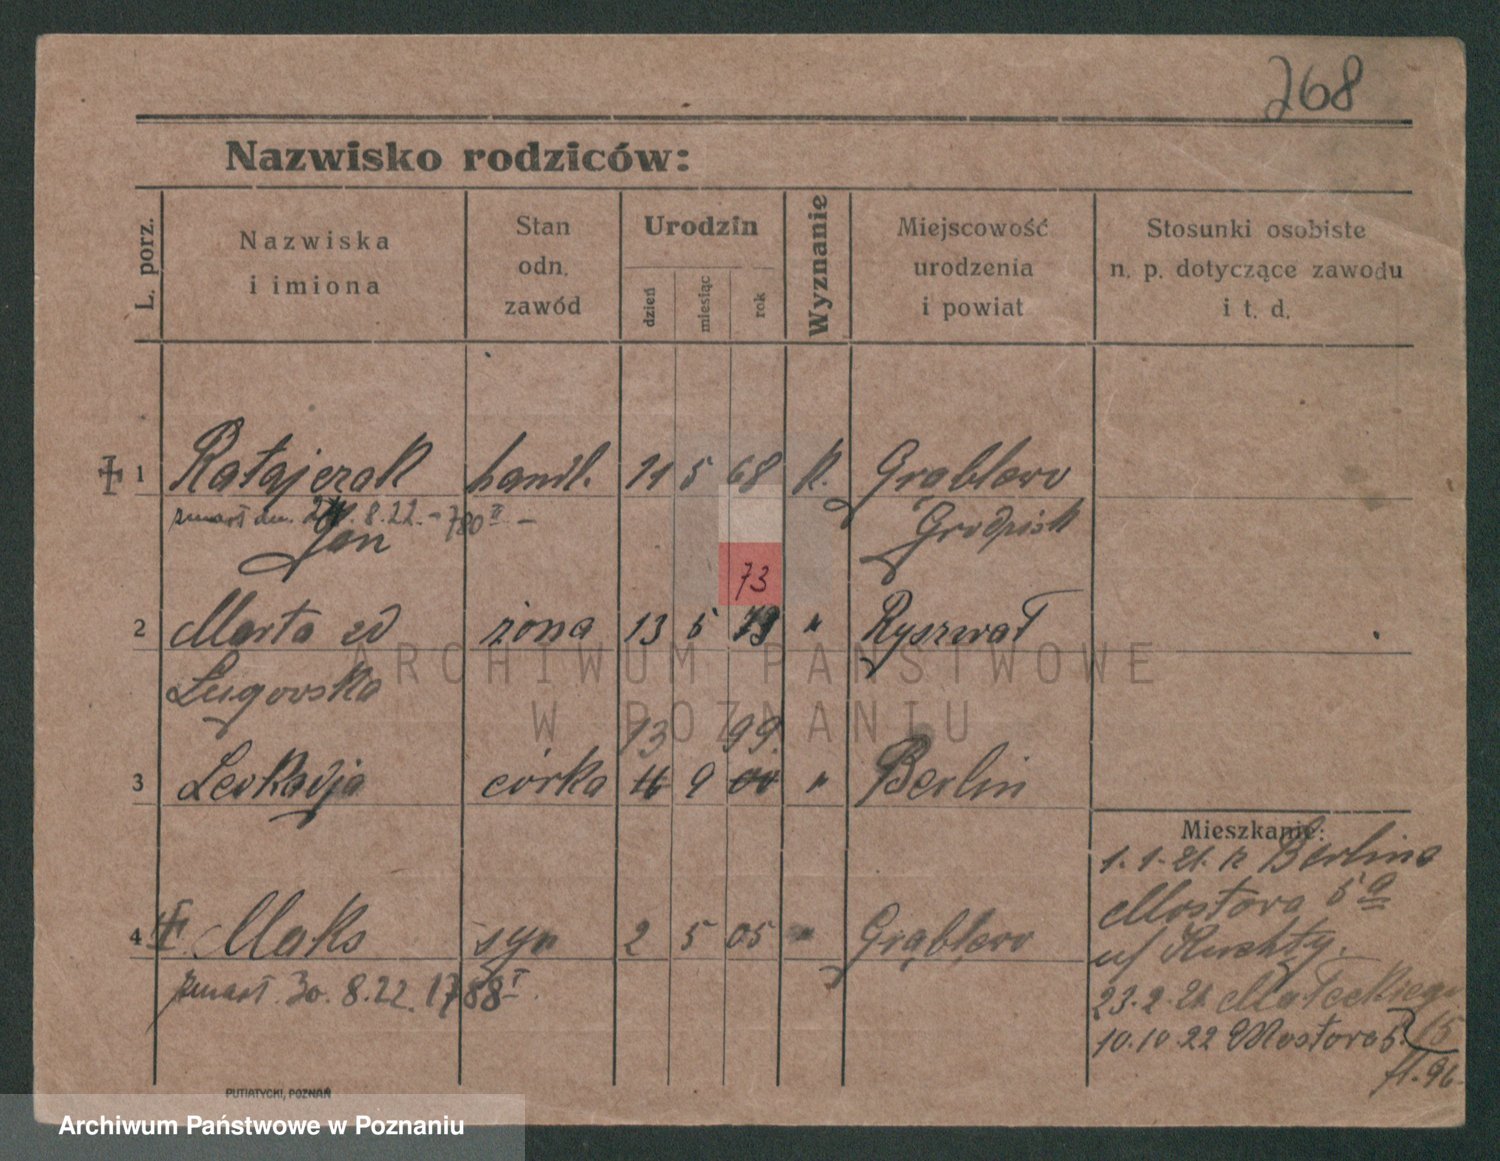 268
Nazwisko rodziców:
L. porz.
Nazwiska
i imiona
Stan
odn.
zawód
Urodzin
dzień
miesiąc
rok
Wyznanie
Miejscowość
urodzenia
i powiat
Stosunki osobiste
n. p. dotyczące zawodu
i t. d.
1 Ratajczak handl. 21 5 68 k. Grąblewo
zmarł dn. 24.8.22. - 780 II -
Jan Grodzisk
73
2 Marta zd żona 13 5 73 " Ryszwał
Lugowska
13 99.
3 Leokadja córka 9 00 " Berlin
Mieszkanie:
1.1.21. z Berlina
Mostowa 5a
4 Maks syn 2 5 05 " Grąblewo
u/ Kuchty.
zmarł 30.8.22. 1788 I.
23.2.21 Małeckiego 15
10.10.22 Mostowa 5.
fl. 96.
PUTIATYCKI, POZNAŃ
ARCHIWUM PAŃSTWOWE
W POZNANIU
Archiwum Państwowe w Poznaniu